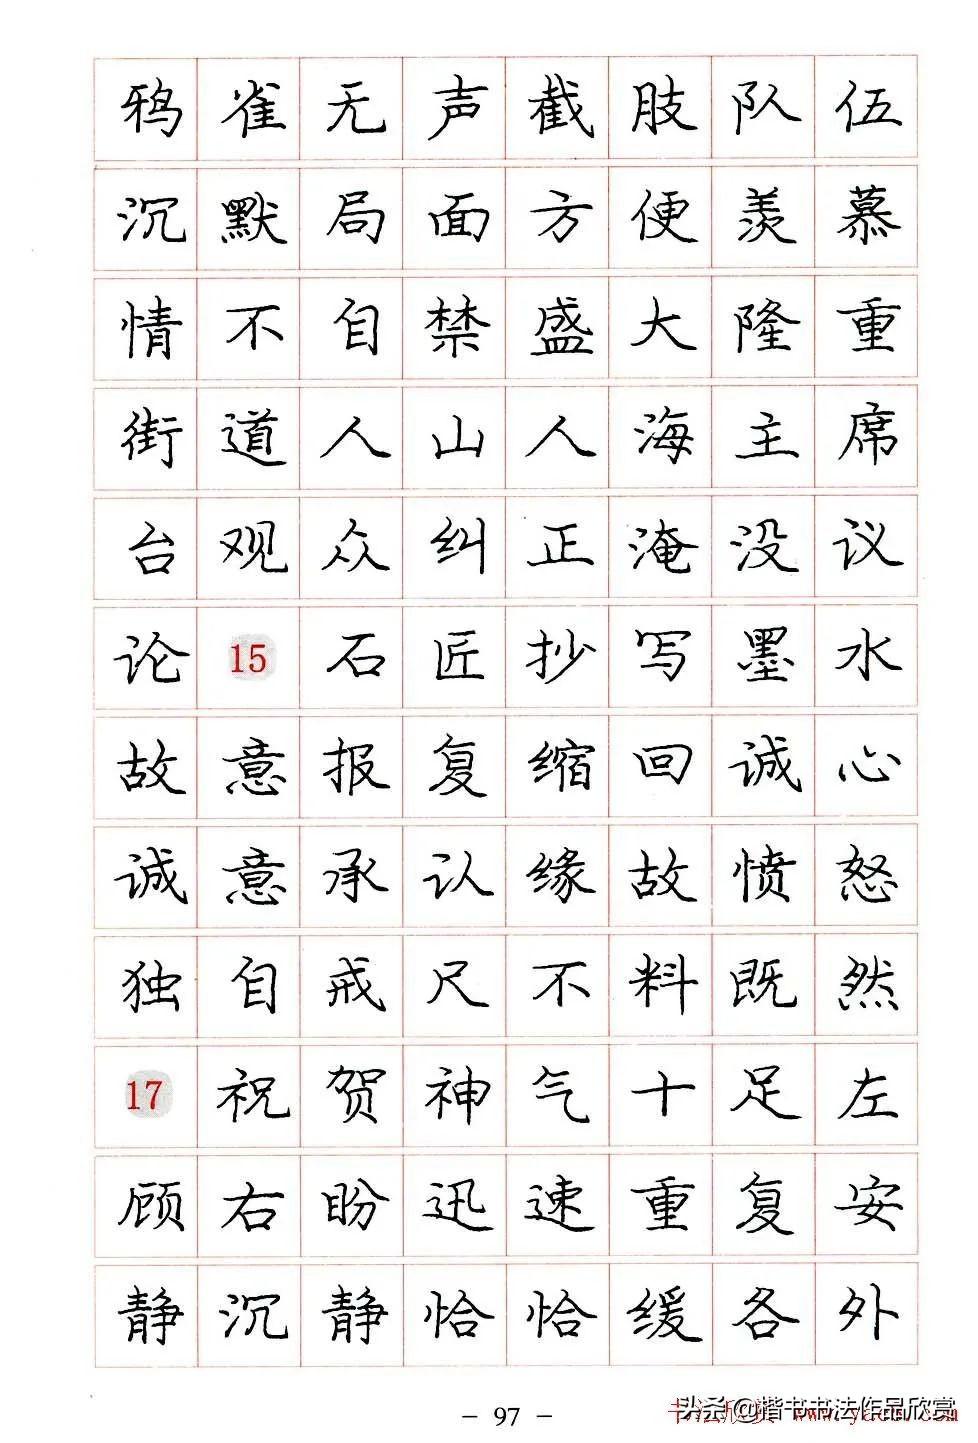 鸦雀无声截肢队伍
沉默局面方便羡慕
情不自禁盛大隆重
街道人山人海主席
台观众纠正淹没议
论15石匠抄写墨水
故意报复缩回诚心
诚意承认缘故愤怒
独自戒尺不料既然
17祝贺神气十足左
顾右盼迅速重复安
静沉静恰恰缓各外
- 97 -
头条@楷书书法作品欣赏